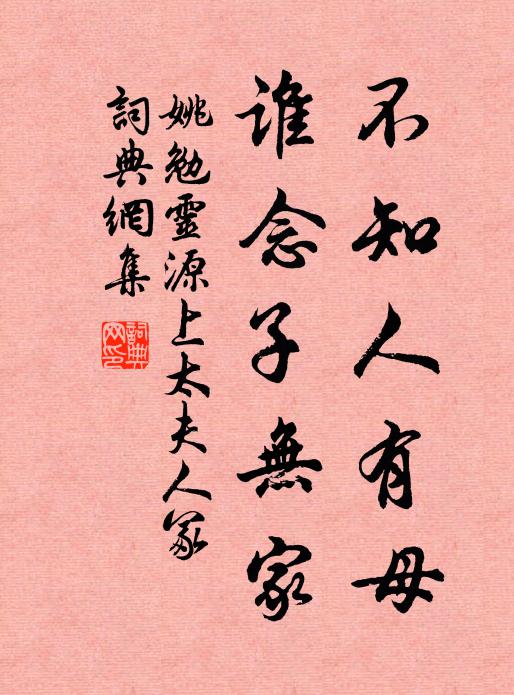 不知人有母
誰念子無家
姚勉靈源上太夫人冢
詞典網集
詞典網印